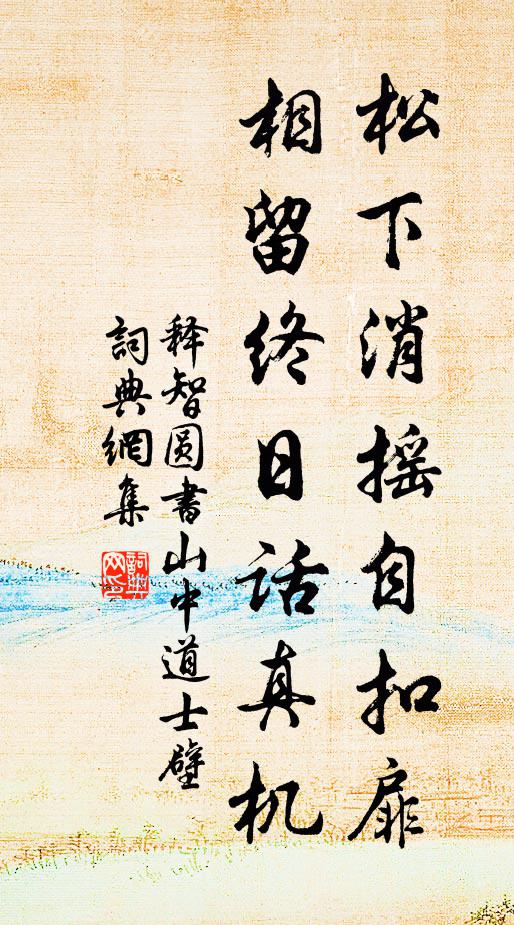 松下消摇自扣扉
相留终日话真机
释智圆书山中道士壁
詞典網集